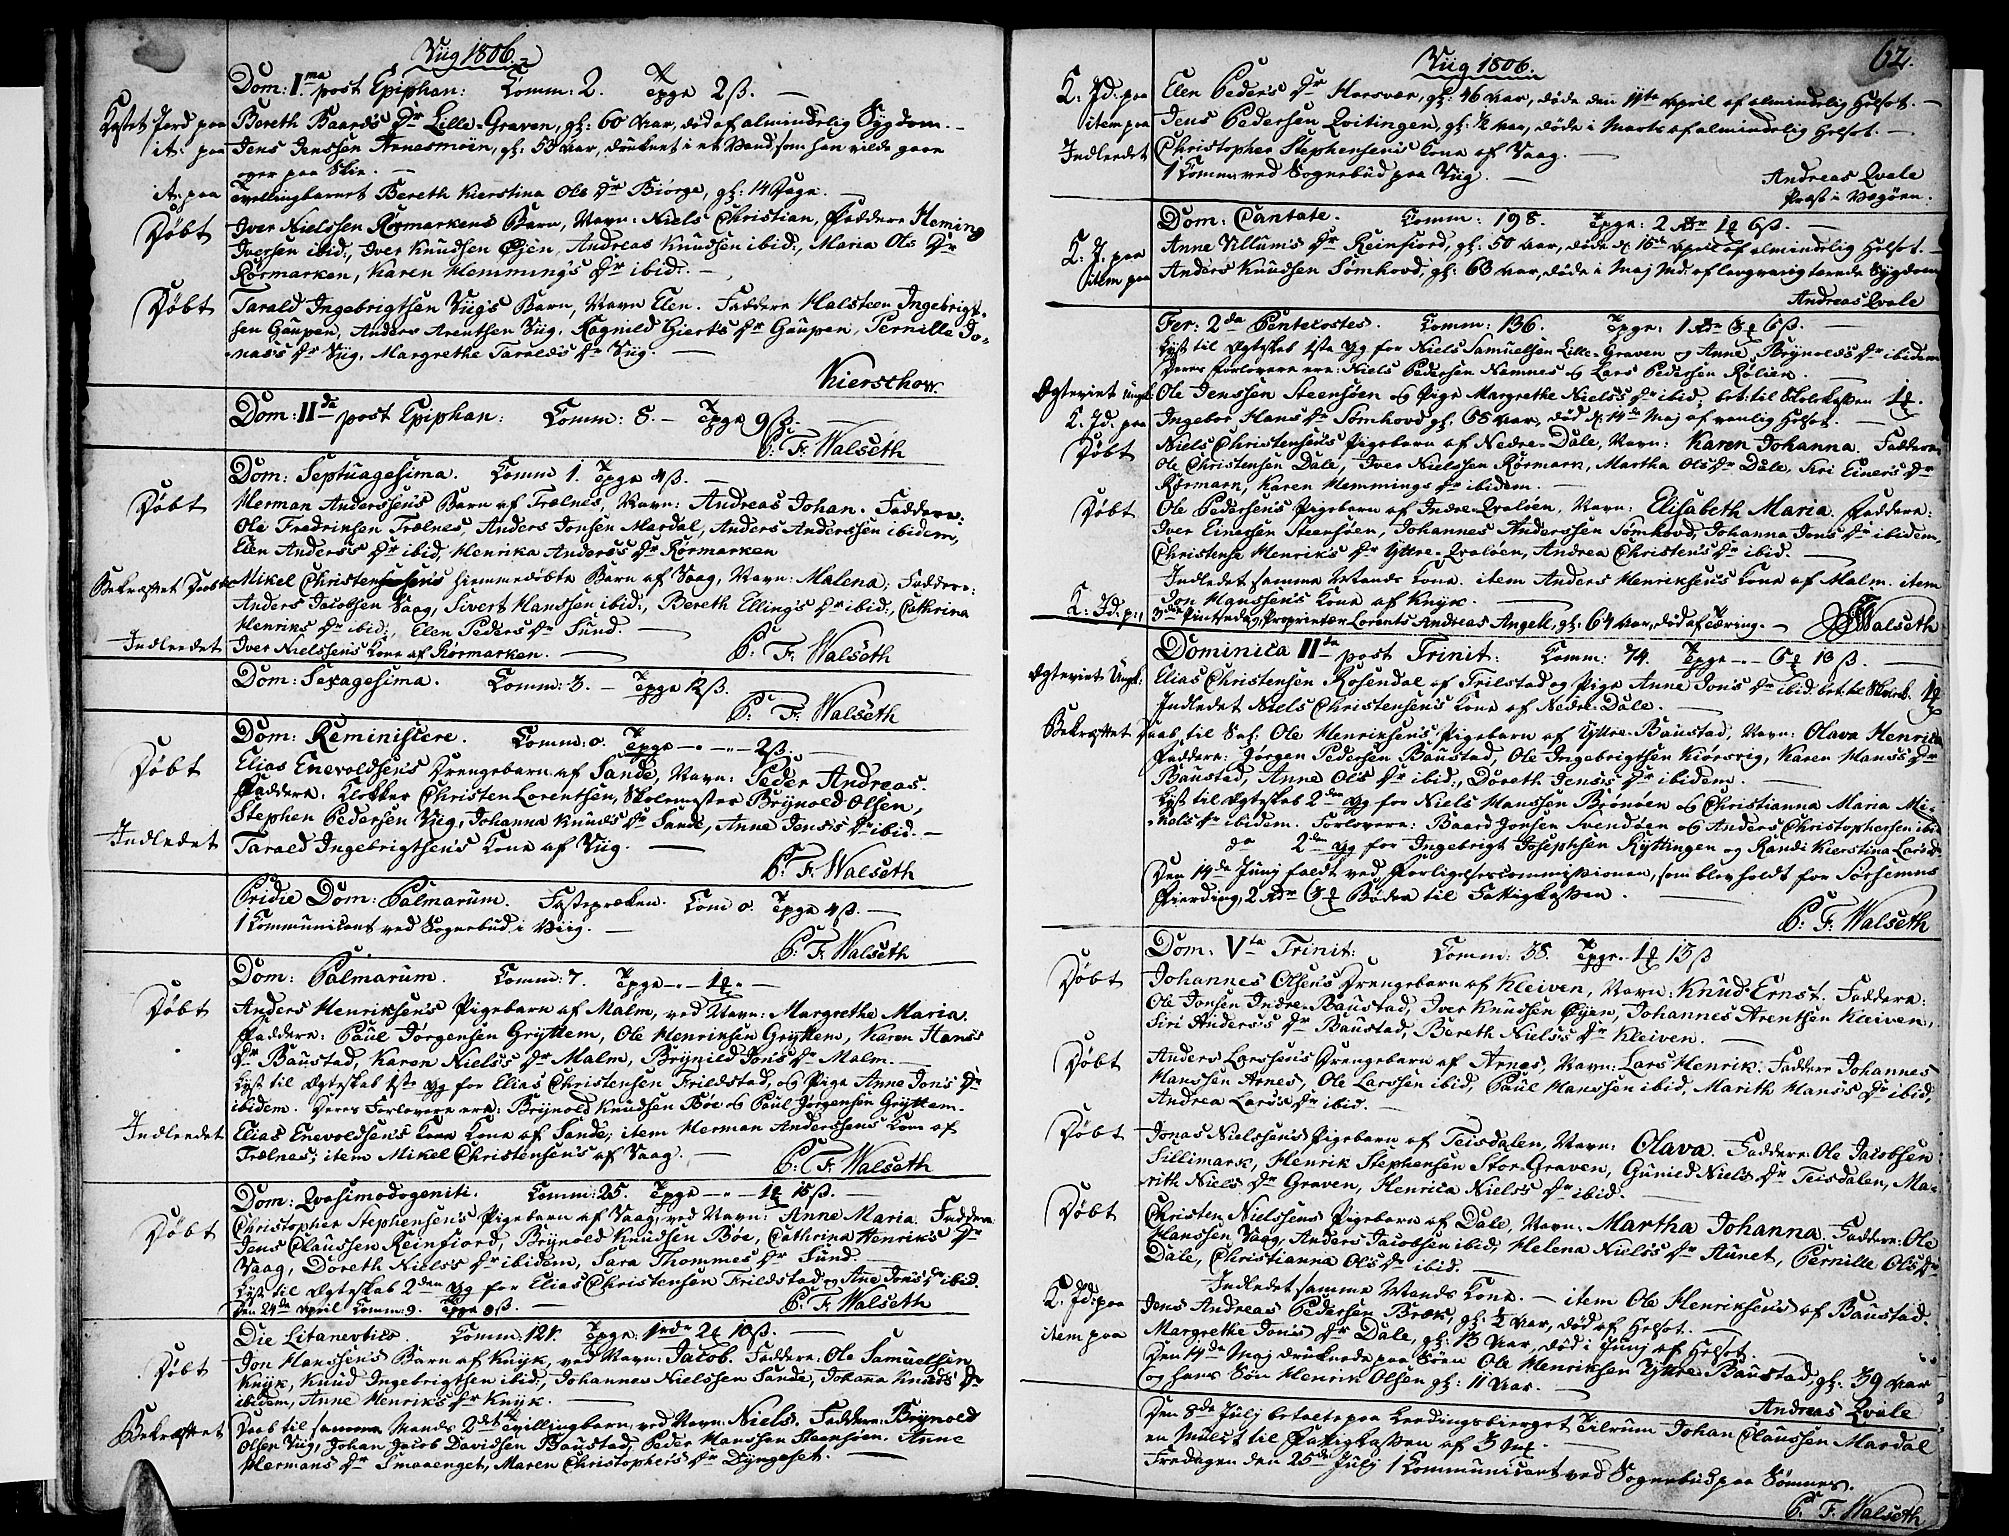 Viig 1806.
Dom: I.ma post Epiphan: Comm: 2. Tpge 2ß.
Kastet Jord paa Bereth Baards Dr Lille-Graven, gl: 60 Aar, død af almindelig Sygdom.
it: paa Jens Jenssen Arnesmoen, gl: 53 Aar, druknet i et Vand, som han vilde gaae
over paa Skie.
it: paa Tvellingbarnet Bereth Kierstina Ols Dr Biørge, gl: 14 Dage.
Døbt Iver Nielssen Rørmarkens Barn, Navn: Niels Christian, Faddere Heming
Iversen ibid:, Iver Knudsen Øyen, Andreas Knudsen ibid:, Maria Ols Dr
Rørmarken, Karen Hemmings Dr ibid:
Døbt Tarald Ingebrigtsen Viigs Barn, Navn Elen. Faddere Halsteen Ingebrigt-
sen Gaupen, Anders Arentsen Viig, Ragnild Gierts Dr Gaupen, Pernille Jo-
næs Dr Viig, Margrethe Taralds Dr Viig.
Kierschow.
Dom: II da post Epiphan: Comm: 8. Tpge 9ß.
C: F: Walseth
Dom: Septuagesima. Comm 1. Tpge 4ß.
Døbt Herman Anderssens Barn af Trælnes, Navn: Andreas Johan. Faddere:
Ole Fredriksen Trælnes, Anders Jonsen Mardal, Anders Anderssen ibidem,
Elen Anders's Dr ibid, Henrika Anders's Dr Rørmarken
Bekræftet Daab Mikel Christensens hiemmedøbte Barn af Vaag, Navn: Malena. Faddere:
Anders Jacobsen Vaag, Sivert Hanssen ibid:, Bereth Ellings Dr ibid:, Cathrina
Henriks Dr ibid:, Elen Peders Dr Sund.
Indleedet Iver Nielssens Kone af Rørmarken. C: F: Walseth
Dom: Sexagesima. Comm: 3. Tpge 12ß.
C: F: Walseth
Dom: Reminiscere. Comm: 0. Tpge 2ß.
Døbt Elias Enevoldsens Drengebarn af Sande, Navn: Peder Andreas.
Faddere: Klokker Christen Lorentsen, Skolemester Brynold Olsen,
Stephen Pedersen Viig, Johanna Knuds Dr Sande, Anne Jons's Dr ibid.
Indledet Tarald Ingebrigtsens Kone af Viig.
C: F: Walseth
Pridie Dom: Palmarum. Fastepræken. Com 0. Tpge 4ß.
1 Communicant ved Sognebud i Viig.
C: F: Walseth
Dom: Palmarum. Comm: 7. Tpge
Døbt Anders Henriksens Pigebarn af Malm, ved Navn: Margrethe Maria.
Faddere: Paul Jørgensen Gryttem, Ole Henriksen Gryttem, Karen Hans's
Dr Baustad, Karen Niels's Dr Malm, Brynild Jons Dr Malm.
Lyst til Ægteskab 1ste Gg for Elias Christensen Frilstad, og Pige Anne Jons Dr
ibidem. Deres Forlovere ere: Brynold Knudsen Bøe og Paul Jørgensen Gryttem.
Indleedet Elias Enevoldsens Kone af Sande; item Herman Anderssens Kone af
Trælnes; item Mikel Christensens af Vaag. C: F: Walseth
Dom: Qvasimodogeniti. Comm: 25. Tpge 15ß.
Døbt Christopher Stephensens Pigebarn af Vaag, ved Navn: Anne Maria. Faddere:
Jens Claussen Reinfiord, Brynold Knudsen Bøe, Cathrina Henriks Dr
Vaag, Doreth Niels's Dr ibidem, Sara Thommes Dr Sund.
Lyst til Ægteskab 2den Gg for Elias Christensen Frildstad og Ane Jons Dr ibid.
Den 24de April Comm: 9. Tpge 8ß. C: F: Walseth
Die Litanevtico. Comm: 121. Tpge: 10ß.
Døbt Jon Hanssens Barn af Knyk, ved Navn: Jacob. Faddere: Ole Samuelssen
Knyk, Knud Ingebrigtsen ibid:, Johannes Nielssen Sande, Johana Knuds Dr
ibidem, Anne Henriks Dr Knyk.
Bekræftet Daab til samme Mands 2det Tvillingbarn, ved Navn: Niels. Faddere: Brynold
Olsen Viig, Johan Jacob Davidsen Baustad, Peder Hanssen Steensøen. Anne
Hermans Dr Smaaenget, Maren Christophers Dr Dyngeset.
Viig 1806. 62.
K: Jd. paa Elen Peders Dr Horsvær, gl: 46 Aar, døde den 11te April af almindelig Helsot.
item paa Jens Pedersen Qvitingen, gl: ½ Aar, døde i Marts af almindelig Helsot.
Indleedet Christopher Stephensens Kone af Vaag.
1 Comm: ved Sognebud paa Viig. Andreas Qvale
Præst i Vegøen.
Dom: Cantate. Comm: 198. Tpge: 2 6ß.
K: J. paa Anne Villums Dr Reinfiord, gl: 50 Aar, døde d. 16de April af almindelig Helsot.
item paa Anders Knudsen Sømhovd, gl: 63 Aar, døde i Maj Md. af langvarig tærende Sygdom
Andreas Qvale
Fer: 2da Pentecostes. Comm: 136. Tpge: 1 6ß.
Lyst til Ægteskab 1ste Gg for Niels Samuelsen Lille-Graven og Anne Brynolds Dr ibidem
Deres Forlovere ere: Niels Pedersen Nemnes og Lars Pedersen Rølien.
Ægteviet Ungk: Ole Jenssen Steensøen og Pige Margrethe Niels's Dr ibid; bet: til Skolekassen
K: Jd. paa Ingebor Hans Dr Sømhovd gl. 68 Aar, død d. 14de Maj af vanlig Helsot.
Døbt Niels Christensens Pigebarn af Nedre-Dale, Navn: Karen Johanna. Faddere:
Ole Christensen Dale, Iver Nielssen Rørmark, Martha Ols Dr Dale, Siri Einers Dr
Rørmark, Karen Hemmings Dr ibidem.
Døbt Ole Pedersens Pigebarn af Indre-Qvaløen, Navn: Elisabeth Maria. Faddere:
Iver Einersen Steensøen, Johannes Anderssen Sømhovd, Johanna Jons Dr ibidem,
Christense Henriks Dr Yttre-Qvaløen, Andrea Christens Dr ibid.
Indledet samme Mands Kone. item Anders Henriksens Kone af Malm. item
Jon Hanssens Kone af Knyk.
K: Jd. p: 3die Pintsedag, Proprietær Lorents Andreas Angell, gl: 64 Aar, død af Tæring. Walseth
Dominica II da post Trinit: Comm: 74. Tpge 13ß.
Ægteviet Ungk: Elias Christensen Rosendal af Frilstad og Pige Anne Jons Dr ibid bet: til
Indledet Niels Christensens Kone af Nedre-Dale.
Bekræftet Daab til Sal: Ole Henriksens Pigebarn af Yttre-Baustad, Navn: Olava Henrica
Faddere: Jørgen Pedersen Baustad, Ole Ingebrigtsen Kiørsvig, Karen Hans's Dr
Baustad, Anne Ols Dr ibid:, Doreth Jens's Dr ibidem.
Lyst til Ægteskab 2den Gg for Niels Hanssen Brønøen og Christianna Maria Mi-
kels Dr ibidem. Forlovere: Baard Jonsen Svendøen og Anders Christophersen ibid
do 2den Gg for Ingebrigt Josephsen Ryttingen og Randi Kierstina Lars's
Den 14de Juny faldt ved Forligelsescommissionen, som blev holdt for Sørhemns
Fierding, 2 Bøder til Fattigkassen.
C: F: Walseth
Dom: V ta Trinit: Comm: 38. Tpge 13ß
Døbt Johannes Olsens Drengebarn af Kleiven, Navn: Knud Ernst. Faddere:
Ole Jonsen Indre-Baustad, Iver Knudsen Øyen, Johannes Arentsen Kleiven,
Siri Anders's Dr Baustad, Bereth Niels's Dr Kleiven.
Døbt Anders Larssens Drengebarn af Arnes, Navn: Lars Henrik. Faddere Johannes
Hanssen Arnes, Ole Larssen ibid, Paul Hanssen ibid, Marith Hans's Dr ibid,
Andrea Lars's Dr ibid.
Døbt Jonas Nielssens Pigebarn af Teisdalen, Navn: Olava. Faddere Ole Jacobsen
Sillimark, Henrik Stephensen Stor-Graven, Gunild Niels Dr Teisdalen, Ma-
rith Niels Dr Graven, Henrica Niels's Dr ibid.
Døbt Christen Nielssens Pigebarn af Dale, Navn: Martha Johanna. Faddere: Ole
Hanssen Vaag, Anders Jacobsen ibid, Helena Niels's Dr Aunet, Pernille Ols Dr
Dale, Christianna Ols Dr ibid.
Indledet samme Mands Kone. item Ole Henriksens af Baustad.
K: Jd: paa Jens Andreas Pedersen Bræk, gl: Aar, død af Helsot.
item paa Margrethe Jons Dr Dale, gl: 13 Aar, død i Junj af Helsot.
Den 14de Maj druknede paa Søen Ole Henriksen Yttre Baustad, gl: 39 Aar
og hans Søn Henrik Olsen gl: 11 Aar.
Andreas Qvale
Den 8de Julj betalte paa Leedingsbierget Tilrum Johan Claussen Mardal
en Mulct til Fattigkassen af 3
Fredagen den 25de Julj 1 Communicant ved Sognebud paa Sømnes.
C: F. Walseth